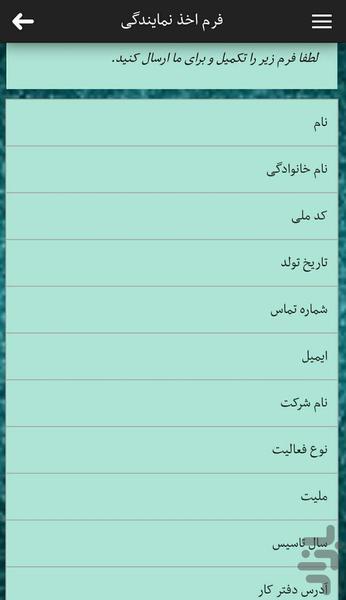 فرم اخذ نمایندگی
لطفا فرم زیر را تکمیل و برای ما ارسال کنید.
نام
نام خانوادگی
کد ملی
تاریخ تولد
شماره تماس
ایمیل
نام شرکت
نوع فعالیت
ملیت
سال تاسیس
آدرس دفتر کار
بازار